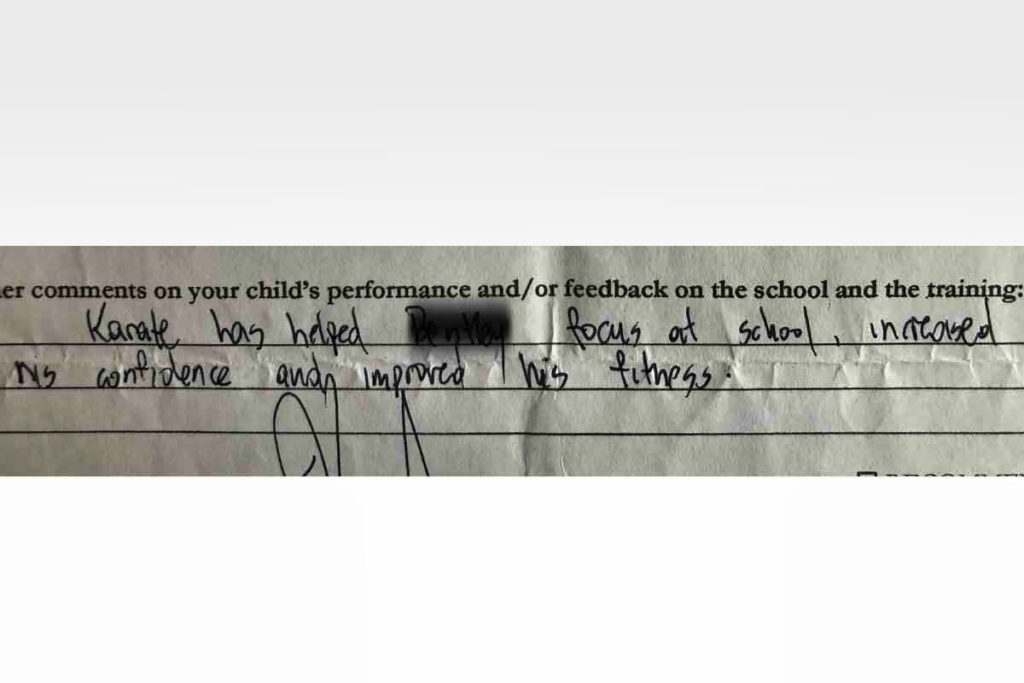 er comments on your child's performance and/or feedback on the school and the training:
Karate has helped focus at school, increased
his confidence and improved his fitness.